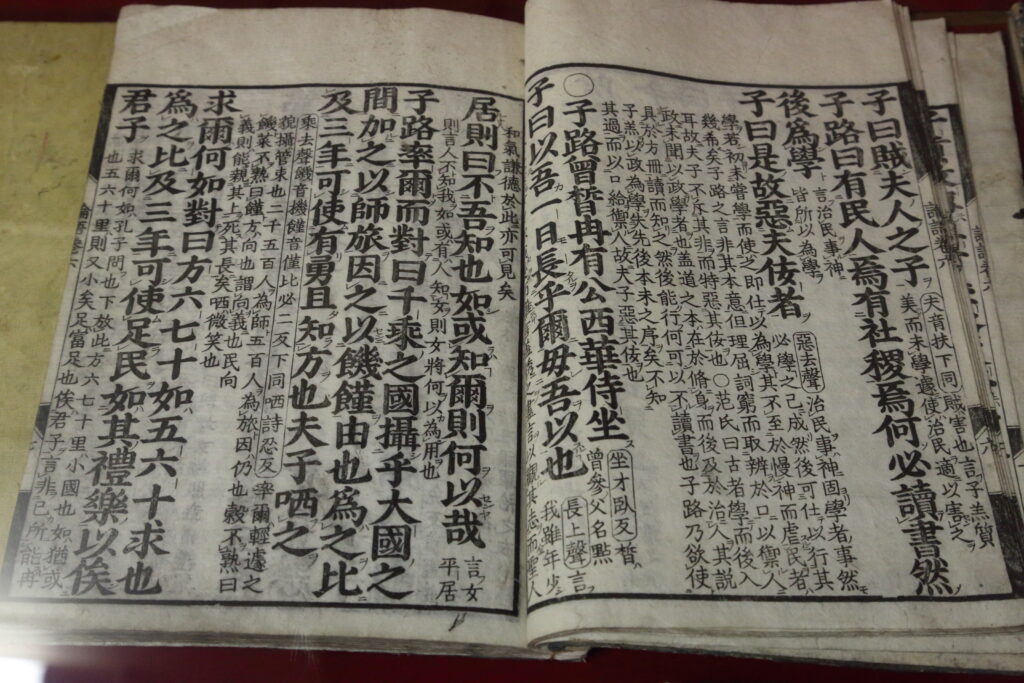 子曰賊夫人之子
夫音扶下同賊害也言子羔質
美而未學遽使治民適以害之
子路曰有民人焉有社稷焉何必讀書然
後為學
言治民事神
皆所以為學
子曰是故惡夫佞者
惡去聲治民事神固學者事然
必學之已成然後可仕以行其
學若初未嘗學而使之即仕以為學其不至於慢神而虐民者
幾希矣子路之言非其本意但理屈詞窮而取辨於口以禦人
耳故夫子不斥其非而特惡其佞也○范氏曰古者學而後入
政未聞以政學者也蓋道之本在於脩身而後及於治人其說
具於方冊讀而知之然後能行何可以不讀書也子路乃欲使
子羔以政為學失先後本末之序矣不知
其過而以口給禦人故夫子惡其佞也
○子路曾皙冉有公西華侍坐
坐才臥反皙
曾參父名點
子曰以吾一日長乎爾毋吾以也
長上聲言
我雖年少
和氣謙德於此亦可見矣
居則曰不吾知也如或知爾則何以哉
言女
平居
則言人不知我如或有人知女則女將何以為用也
子路率爾而對曰千乘之國攝乎大國之
間加之以師旅因之以饑饉由也為之比
及三年可使有勇且知方也夫子哂之
乘去聲饑音機饉音僅比必二反下同哂詩忍反率爾輕遽之
貌攝管束也二千五百人為師五百人為旅因仍也穀不熟曰
饑菜不熟曰饉方向也謂向義也民向
義則能親其上死其長矣哂微笑也
求爾何如對曰方六七十如五六十求也
為之比及三年可使足民如其禮樂以俟
君子
求爾何如孔子問也下放此方六七十里小國也如猶或
也五六十里則又小矣足富足也俟君子言非己所能冉